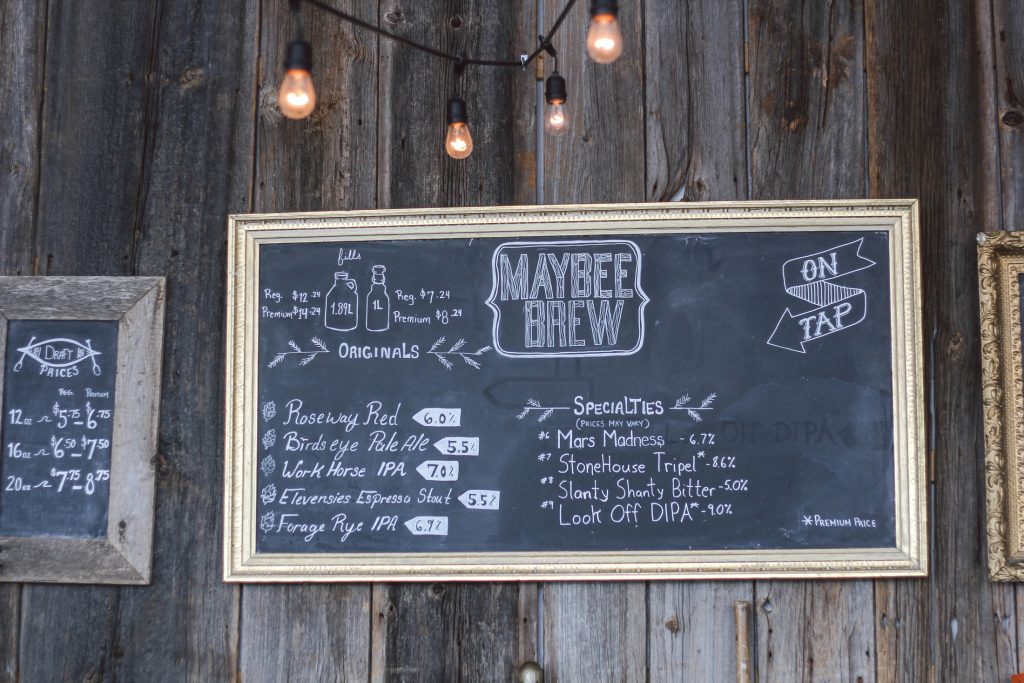 DRAFT
PRICES
REG. PREMIUM
12oz $5.75 - $6.75
16oz $6.50 - $7.50
20oz $7.75 - 8.75
fills
Reg. $12.24
Premium $14.24
1.89L
1L
Reg. $7.24
Premium $8.24
MAYBEE
BREW
ON
TAP
ORIGINALS
Roseway Red 6.0%
Birdseye Pale Ale 5.5%
Work Horse IPA 7.0%
Elevensies Espresso Stout 5.5%
Forage Rye IPA 6.9%
SPECIALTIES
(PRICES MAY VARY)
#6 Mars Madness - 6.7%
#7 StoneHouse Tripel* - 8.6%
#8 Slanty Shanty Bitter - 5.0%
#9 Look Off DIPA* - 9.0%
*PREMIUM PRICE